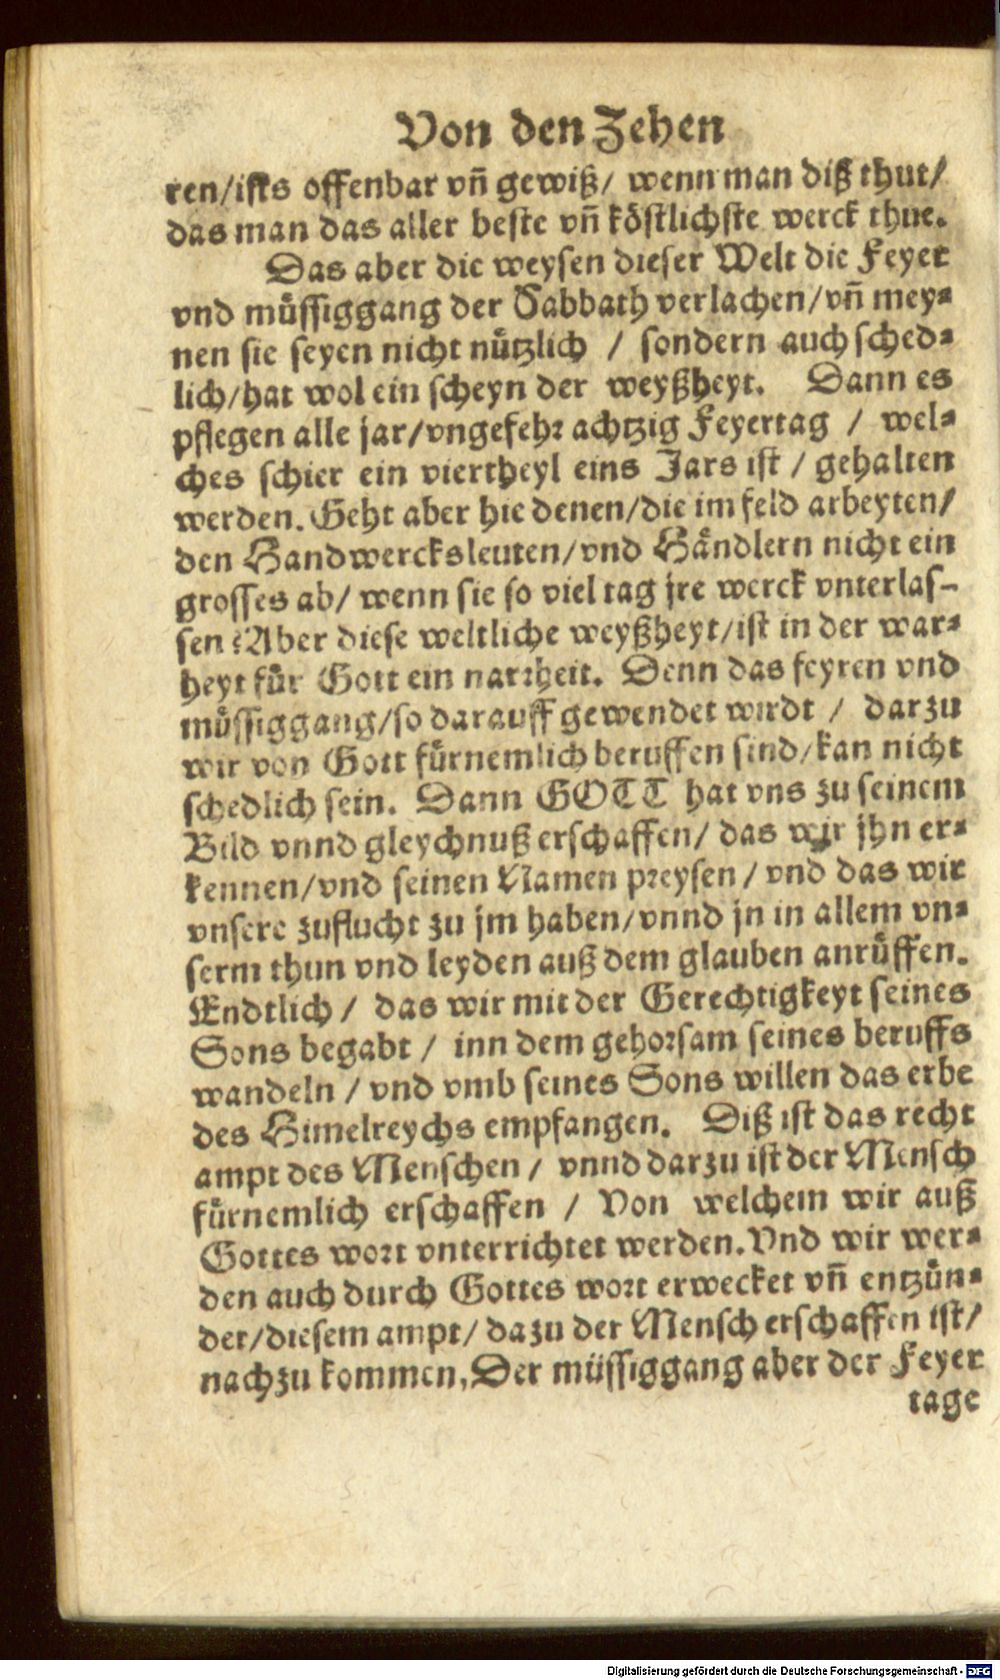 Von den Zehen
ren/ists offenbar vñ gewiß/ wenn man diß thut/
das man das aller beste vñ köstlichste werck thue.
Das aber die weysen dieser Welt die Feyer
vnd müssiggang der Sabbath verlachen/vñ mey-
nen sie seyen nicht nützlich / sondern auch sched-
lich/hat wol ein scheyn der weyßheyt. Dann es
pflegen alle jar/vngefehr achtzig Feyertag / wel-
ches schier ein viertheyl eins Jars ist / gehalten
werden. Geht aber hie denen/die im feld arbeyten/
den Handwercksleuten/vnd Händlern nicht ein
grosses ab/ wenn sie so viel tag jre werck vnterlas-
sen? Aber diese weltliche weyßheyt/ist in der war-
heyt für Gott ein narrheit. Denn das feyren vnd
müssiggang/so darauff gewendet wirdt / darzu
wir von Gott fürnemlich beruffen sind/kan nicht
schedlich sein. Dann GOTT hat vns zu seinem
Bild vnnd gleychnuß erschaffen/ das wir jhn er-
kennen/vnd seinen Namen preysen / vnd das wir
vnsere zuflucht zu jm haben/vnnd jn in allem vn-
serm thun vnd leyden auß dem glauben anrüffen.
Endtlich / das wir mit der Gerechtigkeyt seines
Sons begabt / inn dem gehorsam seines beruffs
wandeln / vnd vmb seines Sons willen das erbe
des Himelreychs empfangen. Diß ist das recht
ampt des Menschen / vnnd darzu ist der Mensch
fürnemlich erschaffen / Von welchem wir auß
Gottes wort vnterrichtet werden. Vnd wir wer-
den auch durch Gottes wort erwecket vñ entzün-
det/diesem ampt/ dazu der Mensch erschaffen ist/
nachzu kommen, Der müssiggang aber der Feyer
tage
Digitalisierung gefördert durch die Deutsche Forschungsgemeinschaft - DFG